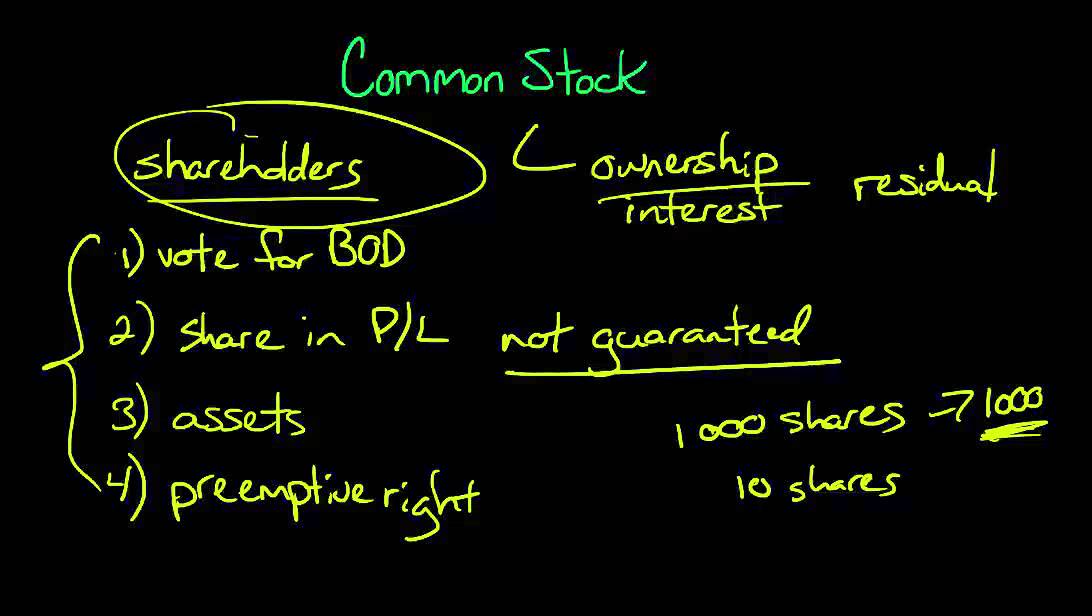 Common Stock
shareholders
ownership
interest
residual
1) vote for BOD
2) share in P/L not guaranteed
3) assets
1000 shares → 1000
4) preemptive right
10 shares